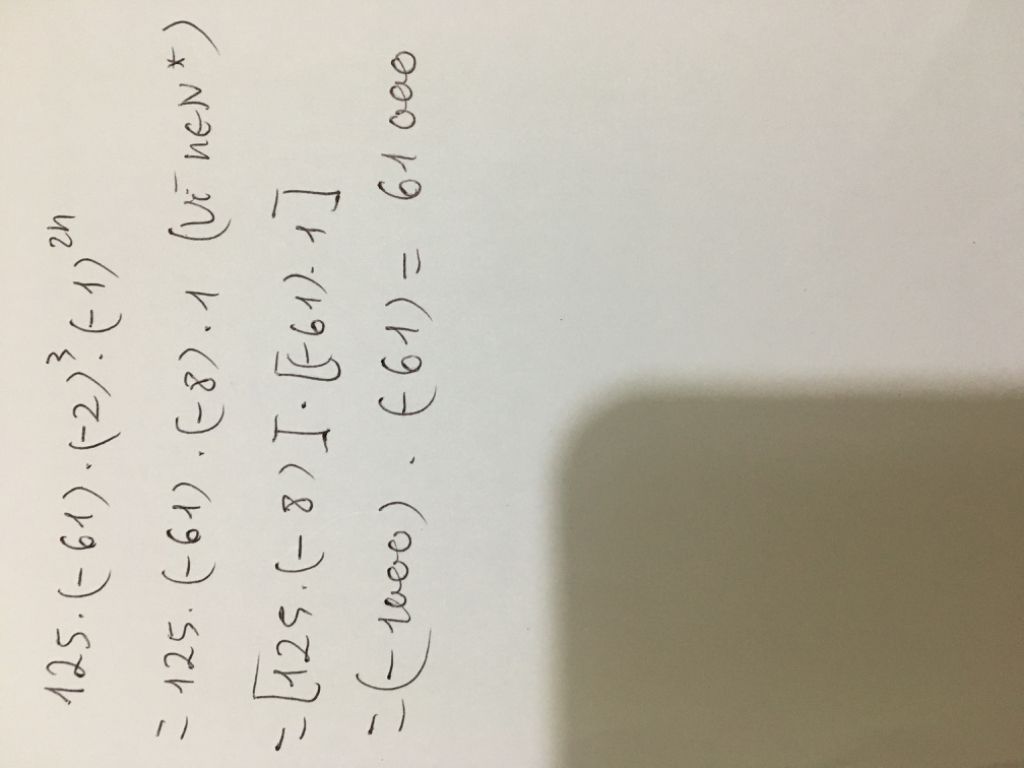 125.(-61).(-2)³.(-1)²ⁿ
= 125.(-61).(-8).1 (Vì n∈N*)
= [125.(-8)].[(-61).1]
= (-1000).(-61) = 61 000